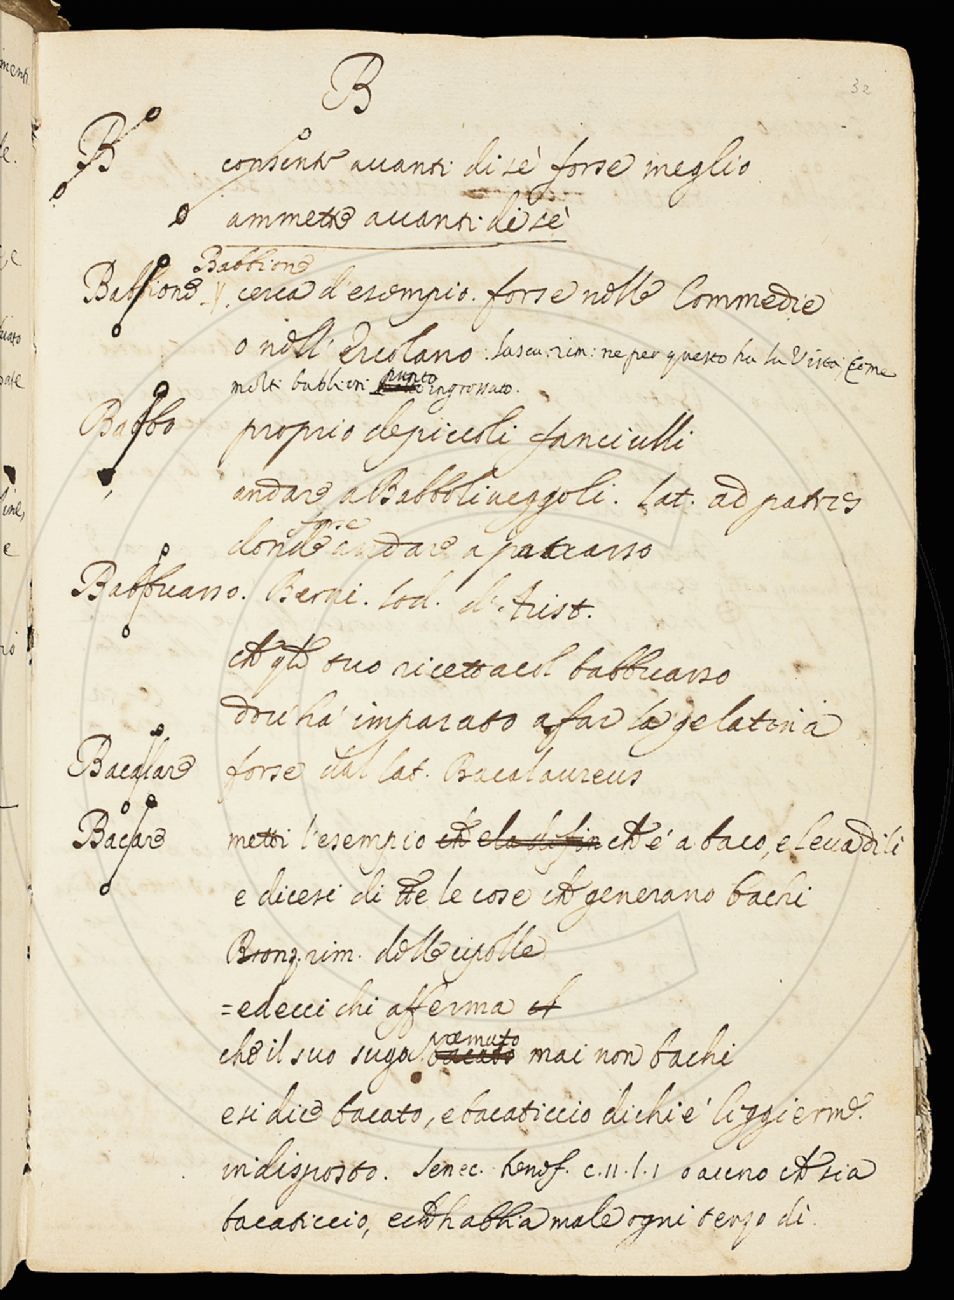 B
32
B consente avanti di sè forse meglio
ammette avanti di sè
Babbione
Babbione cerca d'esempio. forse nelle Commedie
o nell'Ercolano. Lasca. rim: ne per questo ha la vista come
molti babbioni punto ingrossato.
Babbo proprio de piccoli fanciulli
andare a Babboriveggoli. lat. ad patres
forse
donde andare a patrasso
Babbuasso. Berni. lod. d'Arist.
che gli suo ricettacol babbuasso
dov'ha imparato a far la gelatina
Bacalare forse dal lat. Bacalaureus
Bacare metti l'esempio che ch'è a baco, e leva di lì
e dicesi di tte le cose che generano bachi
Bronz. rim. delle cipolle
=ed ecci chi afferma ch
che il suo sugo premuto bacato mai non bachi
e si dice bacato, e bacaticcio di chi e' leggierme.
indisposto. Senec. benef. c.11.l.1 o alcuno che sia
bacaticcio, e ch'habbia male ogni terzo dì